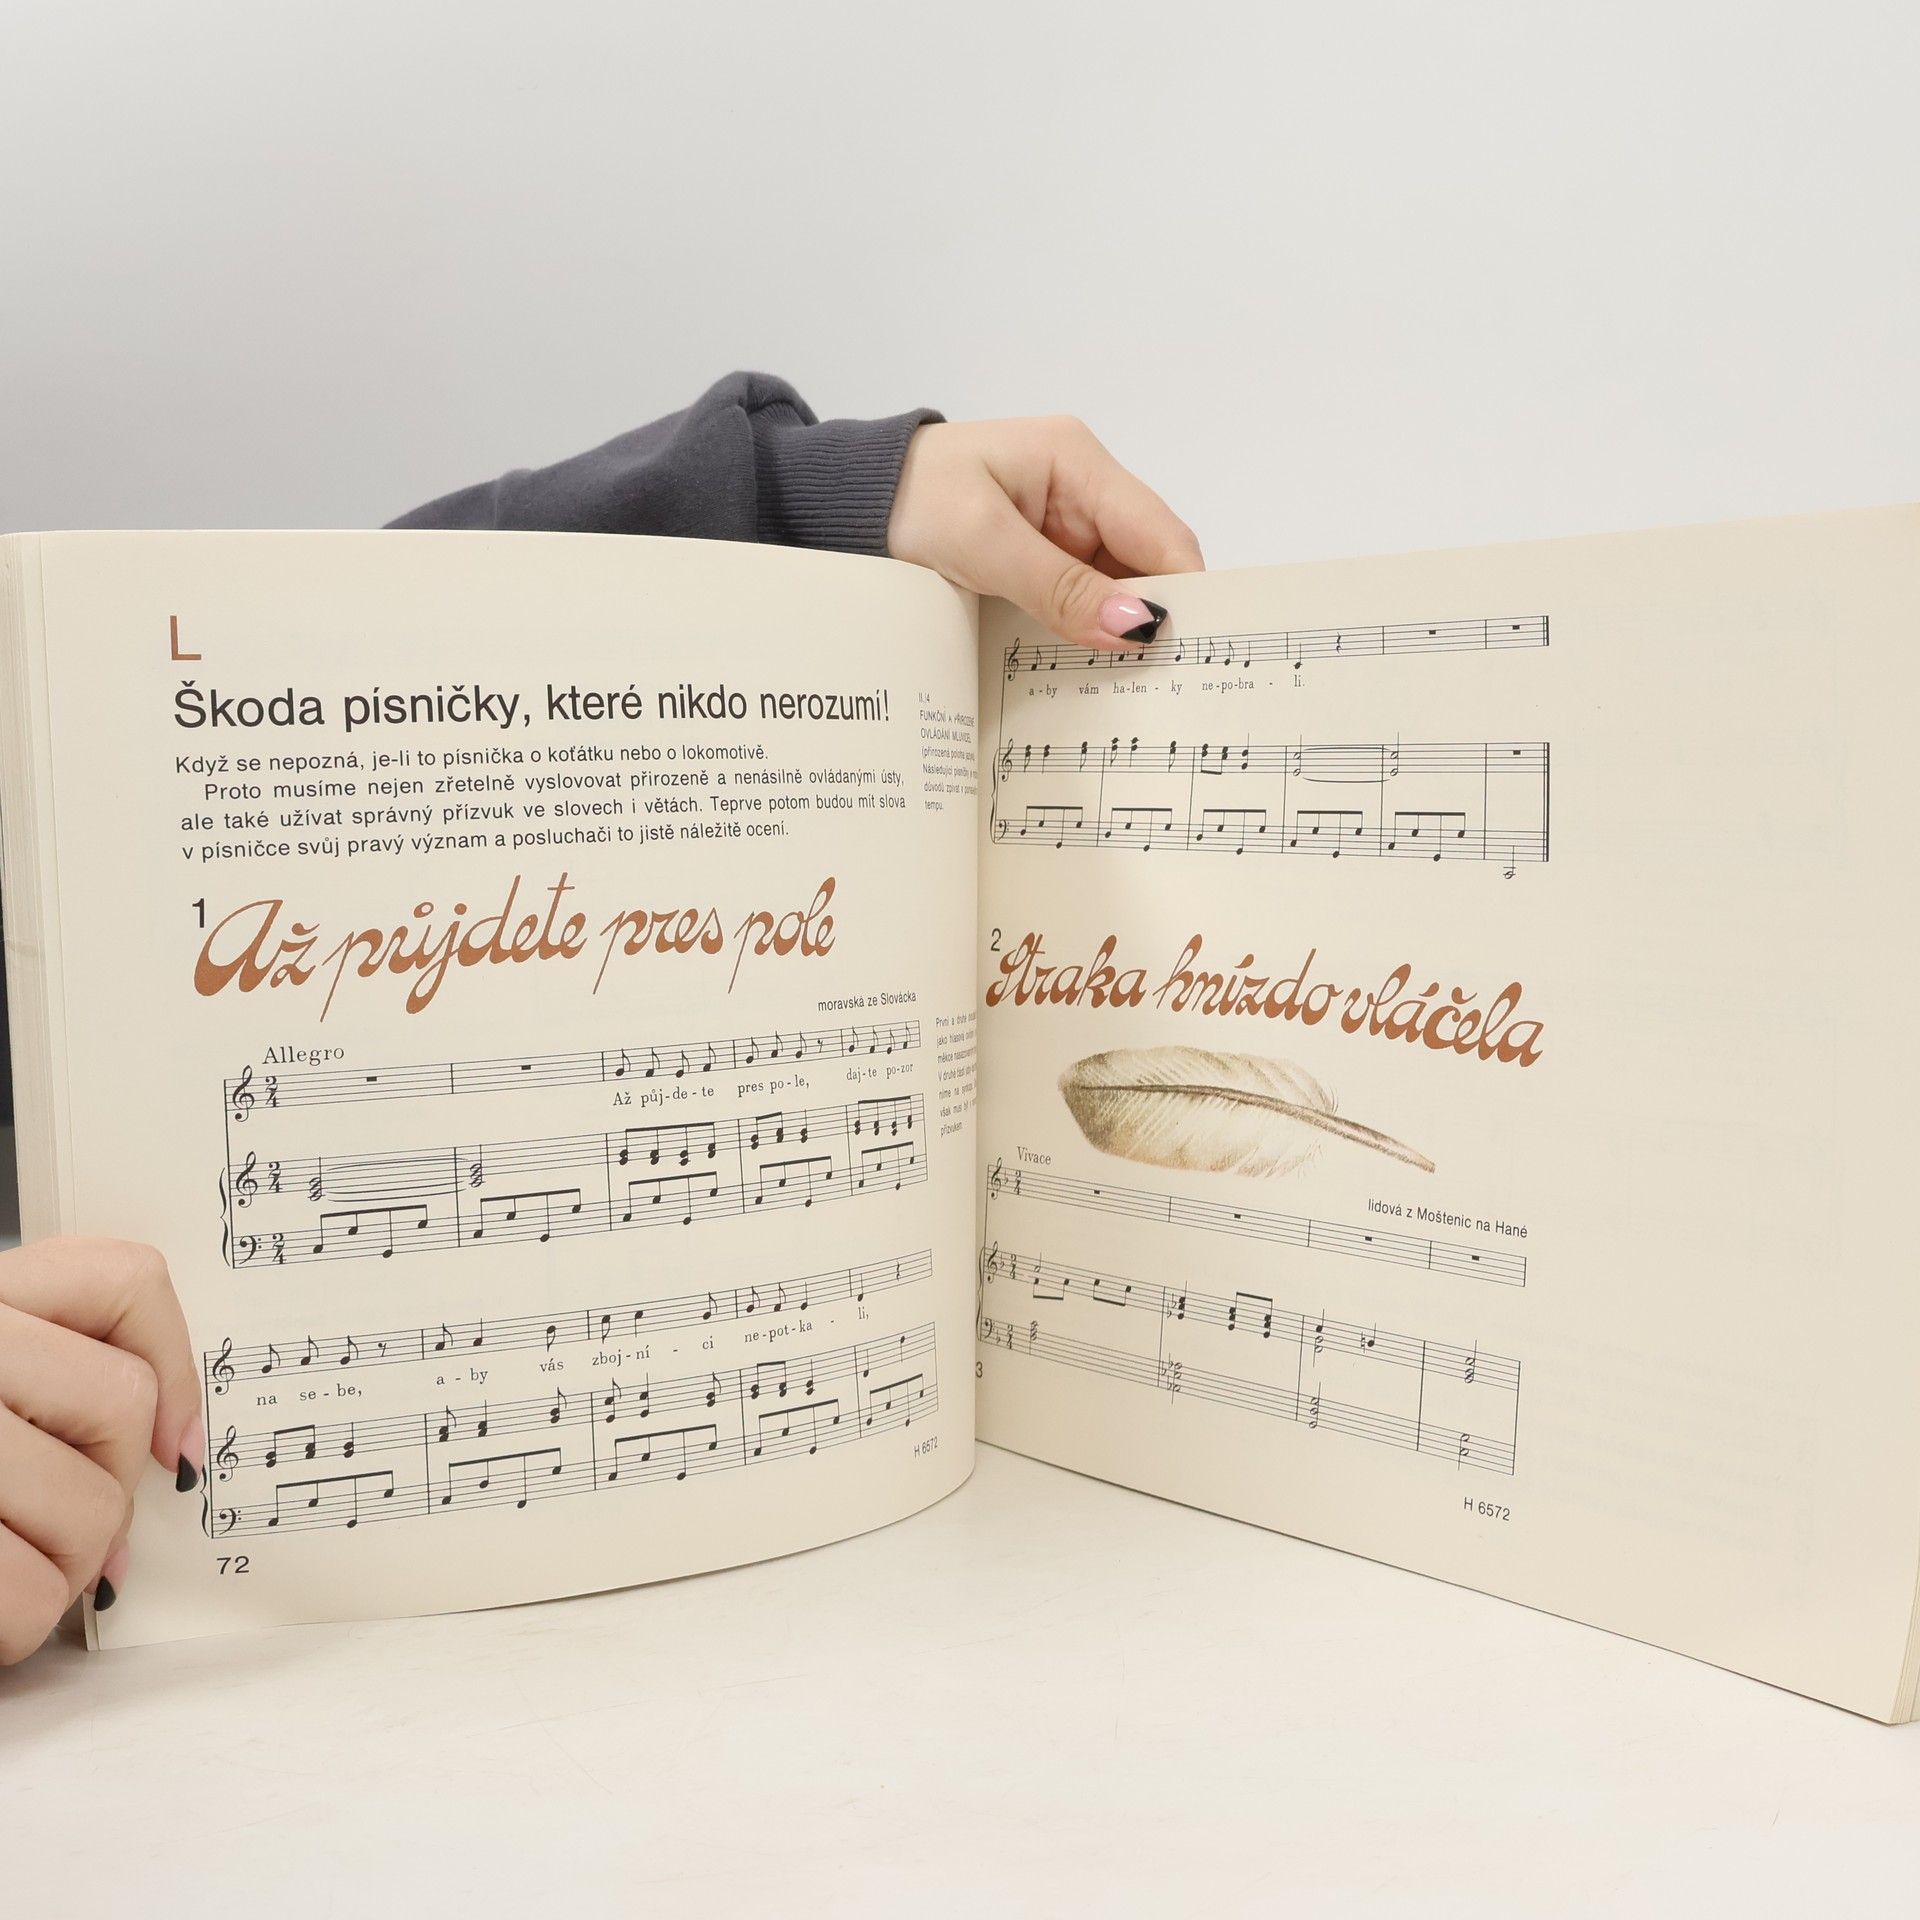 L
Škoda písničky, které nikdo nerozumí!
Když se nepozná, je-li to písnička o koťátku nebo o lokomotivě.
Proto musíme nejen zřetelně vyslovovat přirozeně a nenásilně ovládanými ústy,
ale také užívat správný přízvuk ve slovech i větách. Teprve potom budou mít slova
v písničce svůj pravý význam a posluchači to jistě náležitě ocení.
II./4
FUNKČNÍ A PŘIROZENÉ
OVLÁDÁNÍ MLUVIDEL
(přirozená poloha
Následující písničky
důvodů zpívat v
tempu.
1
Až půjdete pres pole
moravská ze Slovácka
Allegro
Až půj-de-te pres po-le, daj-te po-zor
První a druhé
jako
měkce
V druhé části
níme na
však musí být v
přízvukem.
na se-be, a-by vás zboj-ní-ci ne-pot-ka-li,
H 6572
72
a-by vám ha-len-ky ne-po-bra-li.
2
Straka hnízdo vláčela
Vivace
lidová z Moštenic na Hané
3
H 6572